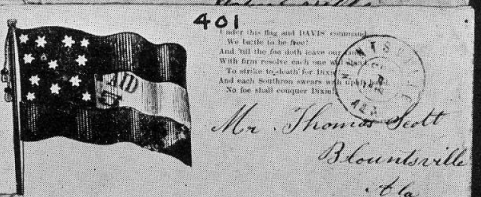 401
Under this flag and DAVIS' command
We battle to be free!
And 'till the foe doth leave our
With firm resolve each one will stand
To strike to death for Dixie
And each Southron swears with
No foe shall conquer Dixie!
PAID
Mr. Thomas Scott
Blountsville
Ala